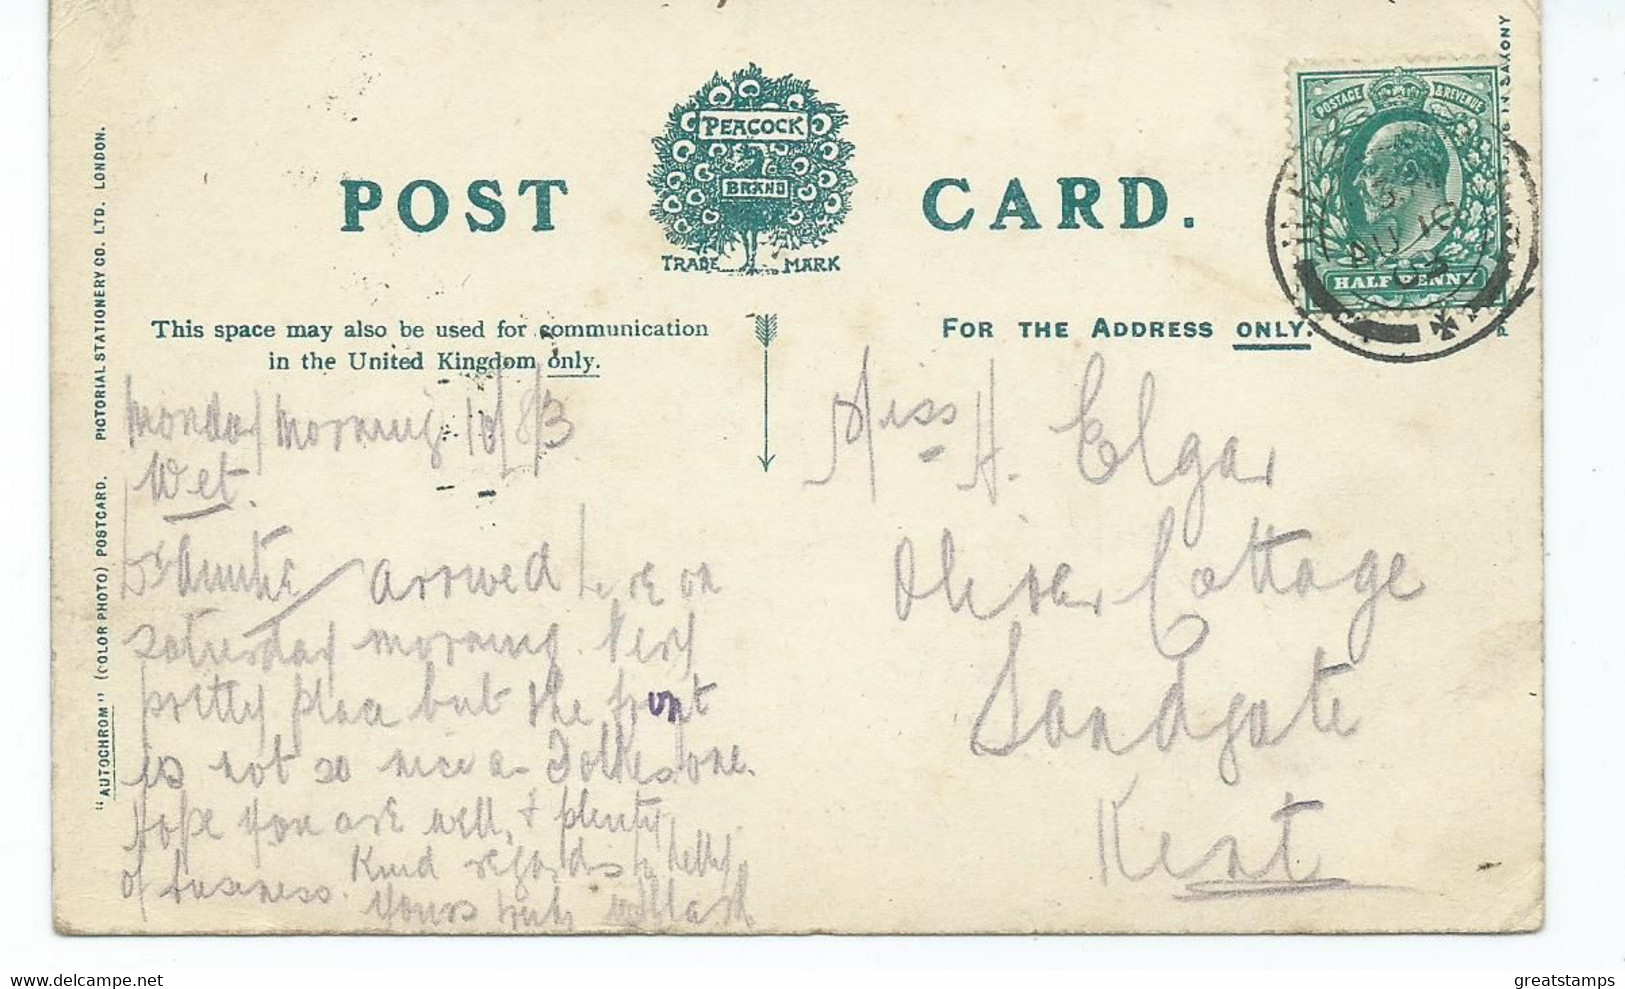 POST CARD.
PEACOCK
BRAND
TRADE MARK
POSTAGE & REVENUE
HALFPENNY
AU 10
03
IN SAXONY
This space may also be used for communication
in the United Kingdom only.
FOR THE ADDRESS ONLY.
"AUTOCHROM" (COLOR PHOTO) POSTCARD. PICTORIAL STATIONERY CO. LTD. LONDON.
Monday Morning 10/8/3
Wet.
Dr Auntie arrived here on
Saturday morning. Very
pretty place but the front
is not so nice as Folkestone.
Hope you are well, & plenty
of business. Kind regards to Nelly
Yours truly
Miss H. Elgar
Oliver Cottage
Sandgate
Kent
greatstamps
www.delcampe.net